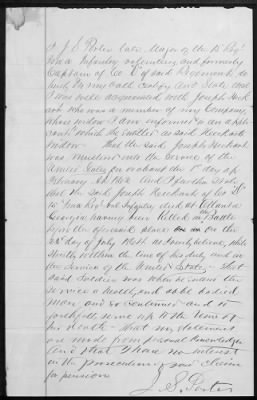 I, J. S. Porter late Major of the 15 Regt
Iowa Infantry Volunteers and formerly
Captain of Co D of said Regiment do
hereby on my oath Certify and State that
I was well acquainted with Joseph
who was a member of my Company,
whose widow I am informed is an appli-
cant which by Entitled as said
Widow - That the said Joseph
was mustered into the service of the
United States on or about the 1st day of
February AD 1862 and I further State
that the said Joseph of Co D
15 Iowa Regt Vol Infantry died at Atlanta
Georgia having been Killed in the Battle
before the aforesaid place on the
day of July 1864 as I verily believe, while
Strictly within the line of his duty and in
the service of the United States - that
said Soldier was when he went the
service a healthy and able bodied
man, and so continued and so
faithfully served up to the time of
his death - That my statement
are made from personal knowledge
and that I have no interest
in the prosecution of said claim
for pension
J. S. Porter